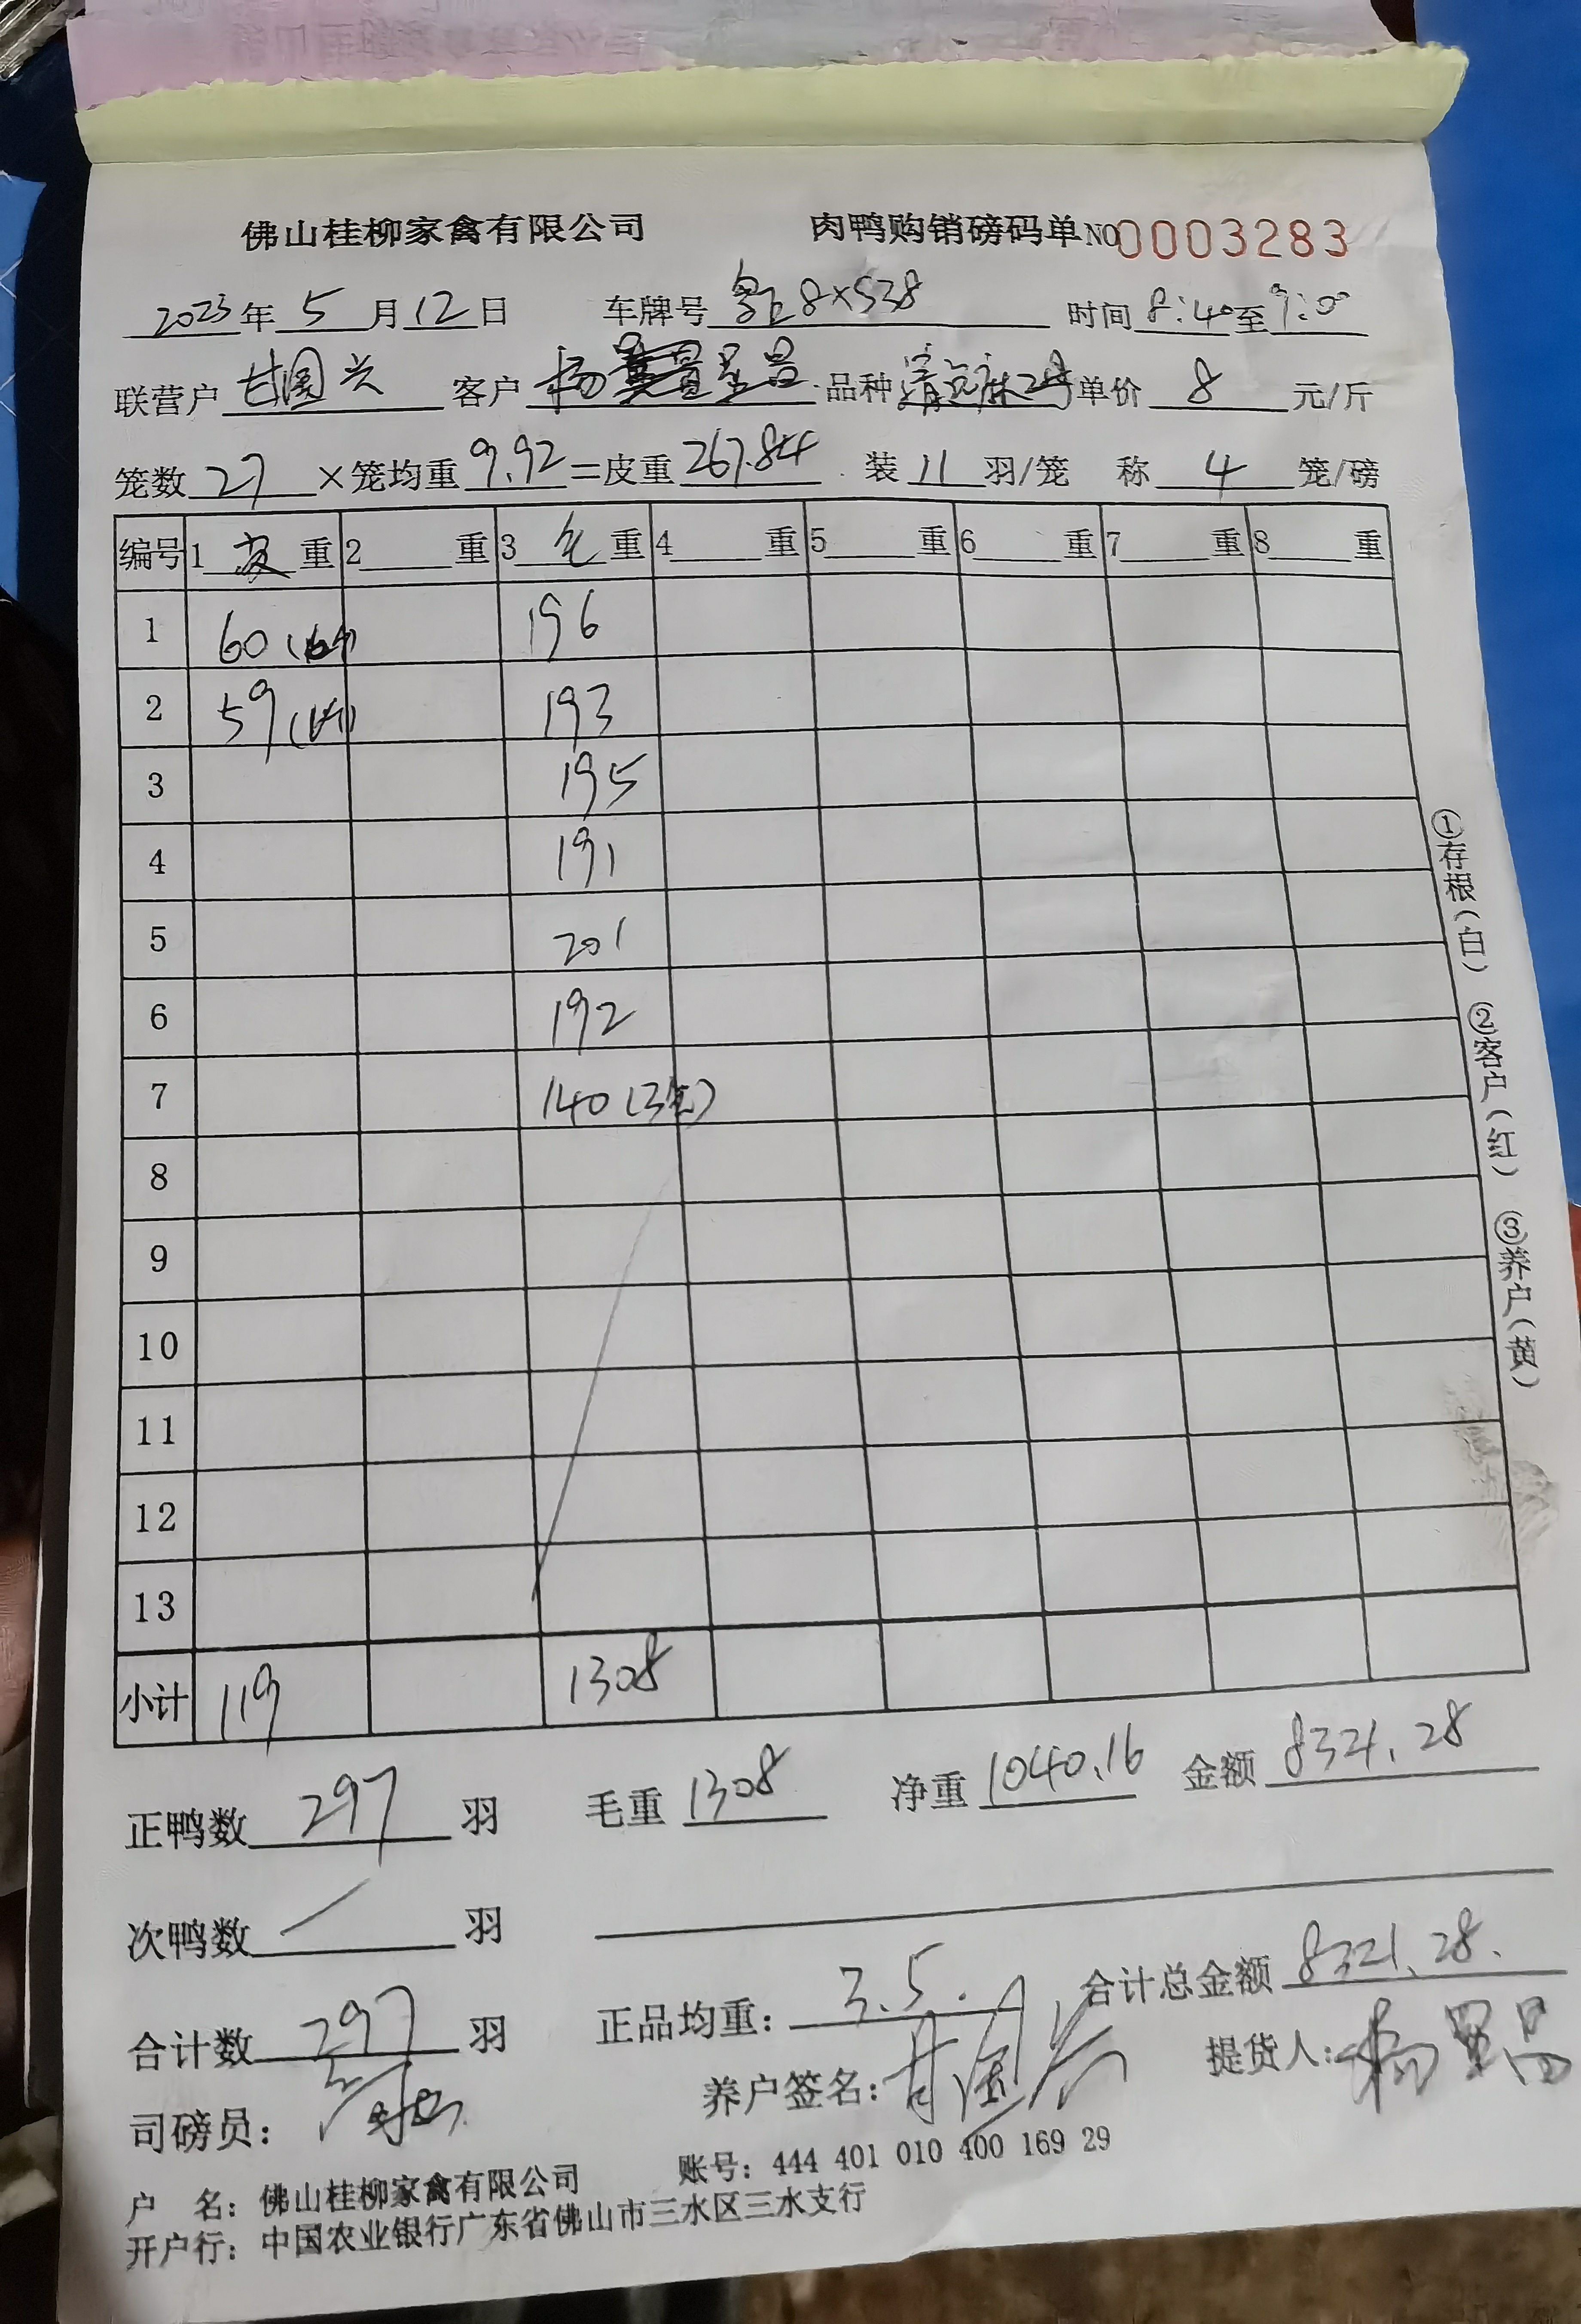 佛山桂柳家禽有限公司 肉鸭购销磅码单 NO 0003283
2023年5月12日 车牌号 粤E8X538 时间 8:40至9:00
联营户 甘国兴 客户 杨星昌 品种 清远麻2号 单价 8 元/斤
笼数 27 ×笼均重 9.92 =皮重 267.84 装 11 羽/笼 称 4 笼/磅
编号 1 皮 重 2 重 3 毛 重 4 重 5 重 6 重 7 重 8 重
1 60 196
2 59 193
3 195
4 191
5 201
6 192
7 140(3笼)
8
9
10
11
12
13
小计 119 1308
正鸭数 297 羽 毛重 1308 净重 1040.16 金额 8321.28
次鸭数 羽
合计数 297 羽 正品均重: 3.5. 合计总金额 8321.28.
司磅员: 养户签名: 甘国兴 提货人: 杨星昌
户 名: 佛山桂柳家禽有限公司 账号: 444 401 010 400 169 29
开户行: 中国农业银行广东省佛山市三水区三水支行
①存根(白) ②客户(红) ③养户(黄)